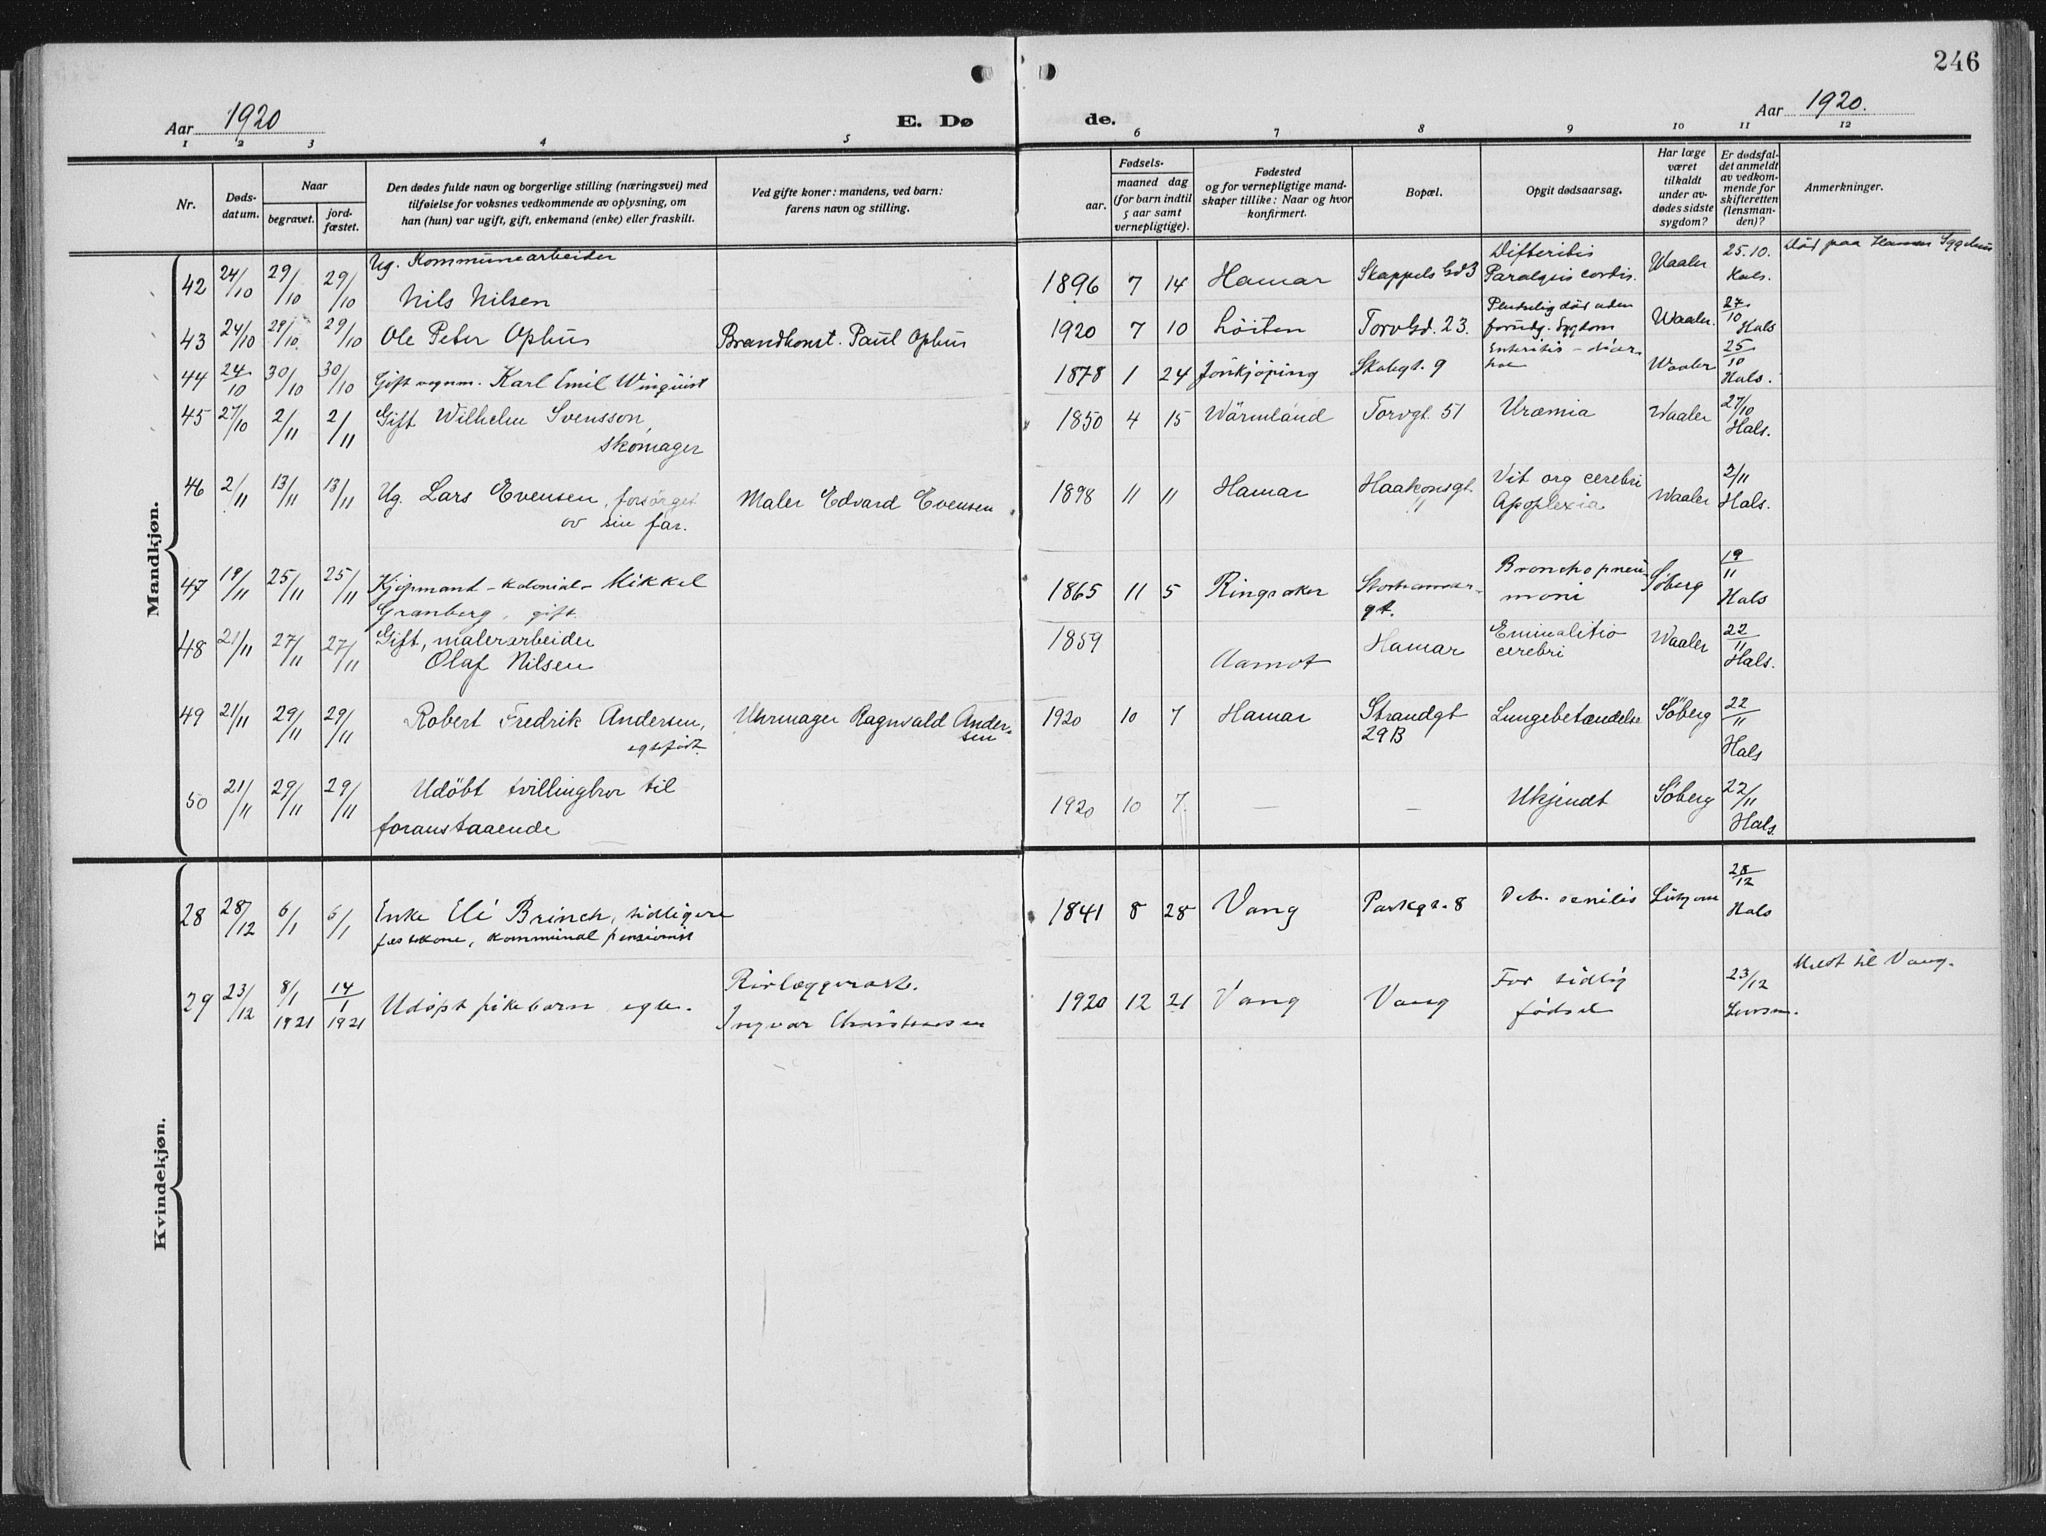 246
Aar 1920
E. Dø
de.
Aar 1920.
1 2 3 4 5 6 7 8 9 10 11 12
Nr.
Døds-
datum.
Naar
begravet.
jord-
fæstet.
Den dødes fulde navn og borgerlige stilling (næringsvei) med
tilføielse for voksnes vedkommende av oplysning, om
han (hun) var ugift, gift, enkemand (enke) eller fraskilt.
Ved gifte koner: mandens, ved barn:
farens navn og stilling.
Fødsels-
aar.
maaned dag
(for barn indtil
5 aar samt
vernepligtige).
Fødested
og for vernepligtige mand-
skaper tillike: Naar og hvor
konfirmert.
Bopæl.
Opgit dødsaarsag.
Har læge
været
tilkaldt
under av-
dødes sidste
sygdom?
Er dødsfal-
det anmeldt
av vedkom-
mende for
skifteretten
(lensman-
den)?
Anmerkninger.
Mandkjøn.
42 24/10 29/10 29/10 Ug. Kommunearbeider
Nils Nilsen 1896 7 14 Hamar Skappels Gd 3 Difteritis
Paralysis cordis. Waaler 25.10.
Hals. Død paa Hamar Sygehus
43 24/10 29/10 29/10 Ole Peter Ophus Brandkonst. Paul Ophus 1920 7 10 Löiten Torvgd. 23. Pludselig død uden
forudg. Sygdom Waaler. 27/10
Hals
44 24/10 30/10 30/10 Gift vognm. Karl Emil Winquist 1878 1 24 Jönkjöping Skolegt. 9 Enteritis - diar-
hoe Waaler 25/10
Hals.
45 27/10 2/11 2/11 Gift Wilhelm Svensson,
skomager 1850 4 15 Wärmland Torvgt. 51 Uræmia Waaler 27/10
Hals.
46 2/11 13/11 13/11 Ug. Lars Evensen, forsørget
av sin far. Maler Edvard Evensen 1898 11 11 Hamar Haakonsgt.
11 Vit org cerebri
Apoplexia Waaler 2/11
Hals.
47 19/11 25/11 25/11 Kjøpmand - kolonial - Mikkel
Granberg, gift. 1865 11 5 Ringsaker Storhamar-
gt. Bronchopneu-
moni Søberg 19/11
Hals
48 21/11 27/11 27/11 Gift, malerarbeider
Olaf Nilsen 1859 Aamot Hamar cerebri Waaler 22/11
Hals.
49 21/11 29/11 29/11 Robert Fredrik Andersen,
egtefødt. Uhrmager Ragnvald Ander-
sen 1920 10 7 Hamar Strandgt
29B Lungebetændelse Søberg 22/11
Hals
50 21/11 29/11 29/11 Udöbt tvillingbror til
foranstaaende 1920 10 7. — — Ukjendt Søberg 22/11
Hals.
Kvindekjøn.
28 28/12 6/1 6/1 Enke Eli Brinch, tidligere
fæstekone, kommunal pensionist 1841 8 28 Vang Parkgt. 8 Deb. senilis 28/12
Hals
29 23/12 8/1 1921 14/1 1921 Udøpt pikebarn egte. Rørlæggerarb.
Ingvar Christiansen 1920 12 21 Vang Vang For tidlig
fødsel 23/12
Lensm. Meldt til Vang.